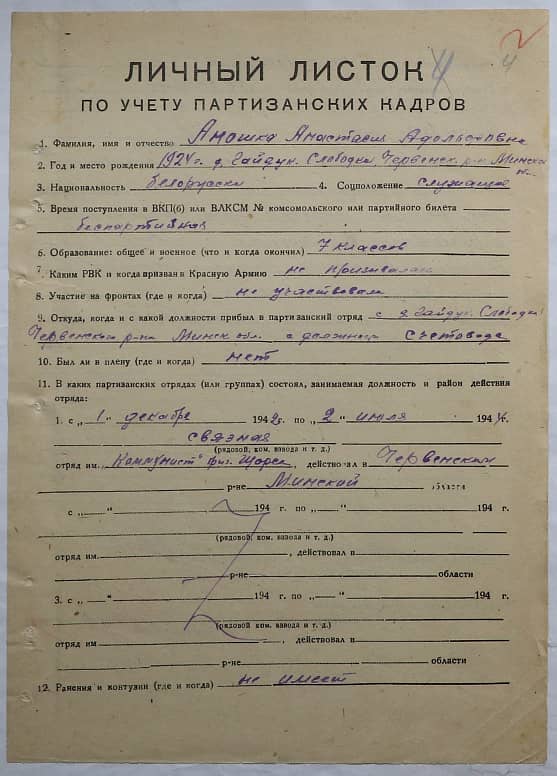 2
4
4
ЛИЧНЫЙ ЛИСТОК
ПО УЧЕТУ ПАРТИЗАНСКИХ КАДРОВ
1. Фамилия, имя и отчество Аношка Анастасия Адольфовна
2. Год и место рождения 1924 г. д. Гайдук. Слободка Червенск. р-на Минской
3. Национальность белорусска 4. Соцположение служащая
5. Время поступления в ВКП(б) или ВЛКСМ № комсомольского или партийного билета
беспартийная
6. Образование: общее и военное (что и когда окончил) 7 классов
7. Каким РВК и когда призван в Красную Армию не призывалась
8. Участие на фронтах (где и когда) не участвовал
9. Откуда, когда и с какой должности прибыл в партизанский отряд с д. Гайдук. Слободка
Червенского р-на Минск. обл. с должности Счетовода
10. Был ли в плену (где и когда) нет
11. В каких партизанских отрядах (или группах) состоял, занимаемая должность и район действия
отряда:
1. с „1" декабря 1942 г. по „2" июля 1944 г.
связная
(рядовой, ком. взвода и т. д.)
отряд им. „Коммунист" бриг. Щорса, действовал в Червенском
р-не Минской области
с „ " 194 г. по „ " 194 г.
(рядовой, ком. взвода и т. д.)
отряд им. , действовал в
р-не области
3. с „ " 194 г. по „ " 194 г.
(рядовой, ком. взвода и т. д.)
отряд им , действовал в
р-не области
12. Ранения и контузии (где и когда) не имеет